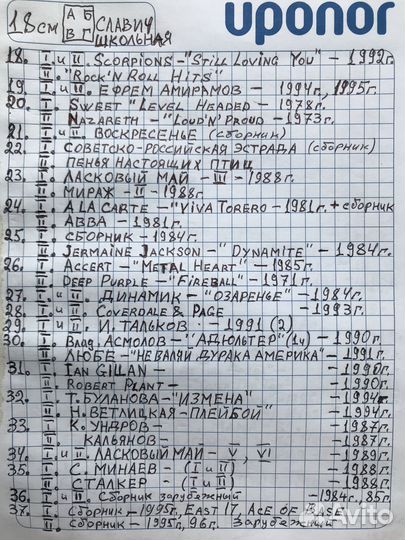 18 см А Б В Г СЛАВИЧ ШКОЛЬНАЯ uponor
18. I и II. SCORPIONS - "STILL LOVING YOU" - 1992г.
II. "ROCK'N ROLL HITS"
19. I и II. ЕФРЕМ АМИРАМОВ - 1994г, 1995г.
20. I. SWEET "LEVEL HEADED - 1978г.
II. NAZARETH - "LOUD'N' PROUD - 1973г.
21. I и II. ВОСКРЕСЕНЬЕ (сборник)
22. I. СОВЕТСКО-РОССИЙСКАЯ ЭСТРАДА (сборник)
II. ПЕНЬЯ НАСТОЯЩИХ ПТИЦ
23. I. ЛАСКОВЫЙ МАЙ - III - 1988г.
II. МИРАЖ - II - 1988г.
24. I. A LA CARTE - "VIVA TORERO - 1981г. + сборник
II. ABBA - 1981г.
25. I. СБОРНИК - 1984г.
II. JERMAINE JACKSON - "DYNAMITE" - 1984г.
26. I. ACCERT - "METAL HEART" - 1985г.
II. DEEP PURPLE - "FIREBALL" - 1971г.
27. I и II. ДИНАМИК - "ОЗАРЕНЬЕ" - 1984г.
28. I и II. COVERDALE & PAGE - 1993г.
29. I и II. И. ТАЛЬКОВ - 1991 (2)
30. I. ВЛАД. АСМОЛОВ - "АДЮЛЬТЕР" (1ч) - 1990г.
II. ЛЮБЕ - "НЕ ВАЛЯЙ ДУРАКА АМЕРИКА" - 1991г.
31. I. IAN GILLAN - - 1990г.
II. ROBERT PLANT - - 1990г.
32. I. Т. БУЛАНОВА - "ИЗМЕНА" - 1994г.
II. Н. ВЕТЛИЦКАЯ - ПЛЕЙБОЙ" - 1994г.
33. I. К. УНДРОВ - 1987г.
II. КАЛЬЯНОВ - - 1987г.
34. I и II. ЛАСКОВЫЙ МАЙ - V, VI - 1989г.
35. I. С. МИНАЕВ - (I и II) - 1988г.
II. СТАЛКЕР - (I и II) - 1988г.
36. I и II. Сборник зарубежный - 1984г., 85г.
37. I. Сборник - 1995г., EAST 17, ACE OF BASE
II. Сборник - 1995г, 96г. Зарубежный
Avito